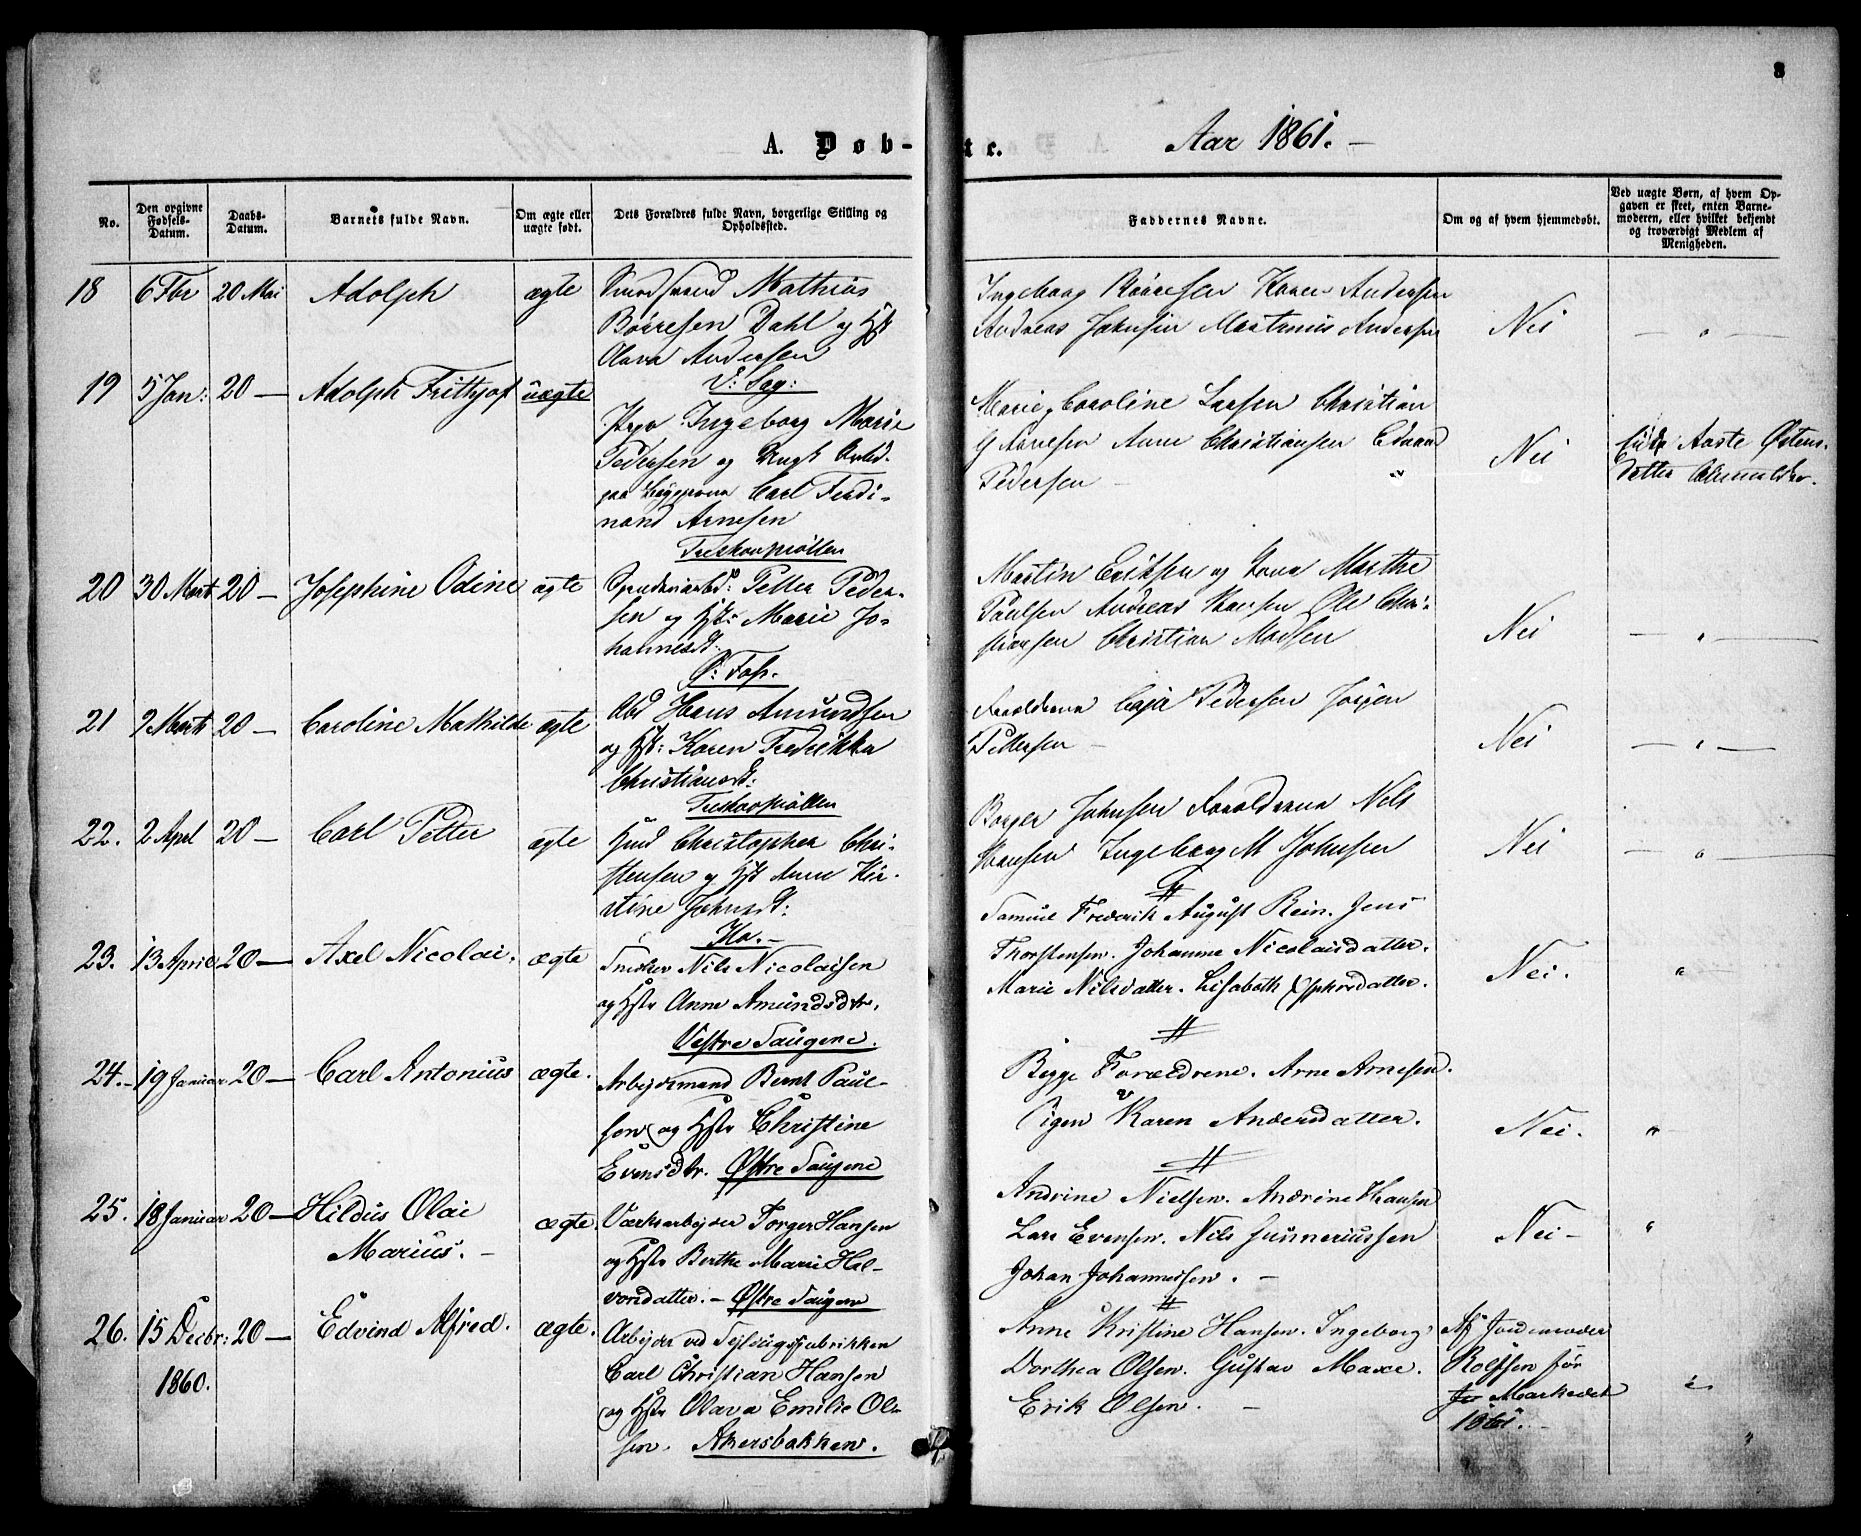 8
A. Døb-
te.
Aar 1861. —
No.
Den opgivne Fødsels-Datum.
Daabs-Datum.
Barnets fulde Navn.
Om ægte eller uægte født.
Dets Forældres fulde Navn, borgerlige Stilling og Opholdssted.
Faddernes Navne.
Om og af hvem hjemmedøbt.
Ved uægte Børn, af hvem Opgaven er skeet, enten Barnemoderen, eller hvilket bekjendt og troværdigt Medlem af Menigheden.
18 6 Fbr 20 Mai Adolph ægte
Mathias
Børresen Dahl og Hst
Olava Andersen
V: Sag:
Ingeborg Børresen Karen Andersen
Andreas Johnsen Martinius Andersen
Nei
— " —
19 5 Jan: 20 — Adolph Frithjof uægte
Pige Ingeborg Marie
Pedersen og Ungk Arbd.
paa Carl Ferdi-
nand Arnesen
Treskowmøllen
Marie Caroline Larsen Christian
G Arnesen Anne Christiansen Edvard
Pedersen —
Nei
Aaste Østens-
datter
20 30 Mart 20 — Josephine Odine ægte
Petter Peder-
sen og Hst: Marie Jo-
hannesdt:
Ø: Fos.
Martin Eriksen og Kone Marthe
Paulsen Andreas Hansen Ole Chri-
stiansen Christian Madsen
Nei
— " —
21 9 Marts 20 — Caroline Mathilde ægte
Abd Hans Amundsen
og Hst: Karen Fredrikke
Christiansdt:
Treskowmøllen
Forældrene Caja Pedersen Jørgen
Pettersen —
Nei
— " —
22. 2 April 20 — Carl Petter ægte
Christopher Chri-
stensen og Hst Anne Kir-
stine Johnsdt:
Mo. —
Borger Johnsen Forældrene Nels
Hansen Ingeborg M Johnsen
Nei
— " —
23. 13 April 20 — Axel Nicolai. ægte
Snedker Nils Nicolaisen
og Hstr Anne Amundsdtr.
Vestre Saugene.
Samuel Frederik August Rein. Jens
Thorstensen. Johanne Nicolaisdatter.
Marie Nilsdatter. Lisabeth
Nei.
"
24. — 19 Januar 20 — Carl Antonius ægte.
Arbejdsmand Bernt Paul-
sen og Hstr Christine
Evensdtr. Østre Saugene
Begge Forældrene. Arne Arnesen.
Pigen Karen Andersdatter.
Nei.
"
25. 18 Januar 20 — Hildus Olai
Marius. —
ægte.
Værksarbejder Torger Hansen
og Hstr Berthe Marie Hal-
vorsdatter. — Østre Saugene
Andrine Nielsen. Andrine Hansen
Lars Evensen. Nils Gunneriussen
Johan Johannesen. —
Nei —
"
26. 15 Decbr: 20 — Edvind Alfred. ægte.
1860.
Arbejder ved Sejldugsfabrikken
Carl Christian Hansen
og Hstr Olava Emilie Ol-
sen. Akersbakken.
Anne Kristine Hansen. Ingeborg
Dorthea Olsen. Gustav Maxe.
Erik Olsen. —
Af Jordemoder
Rolfsen før
Markedet
1861. —
"